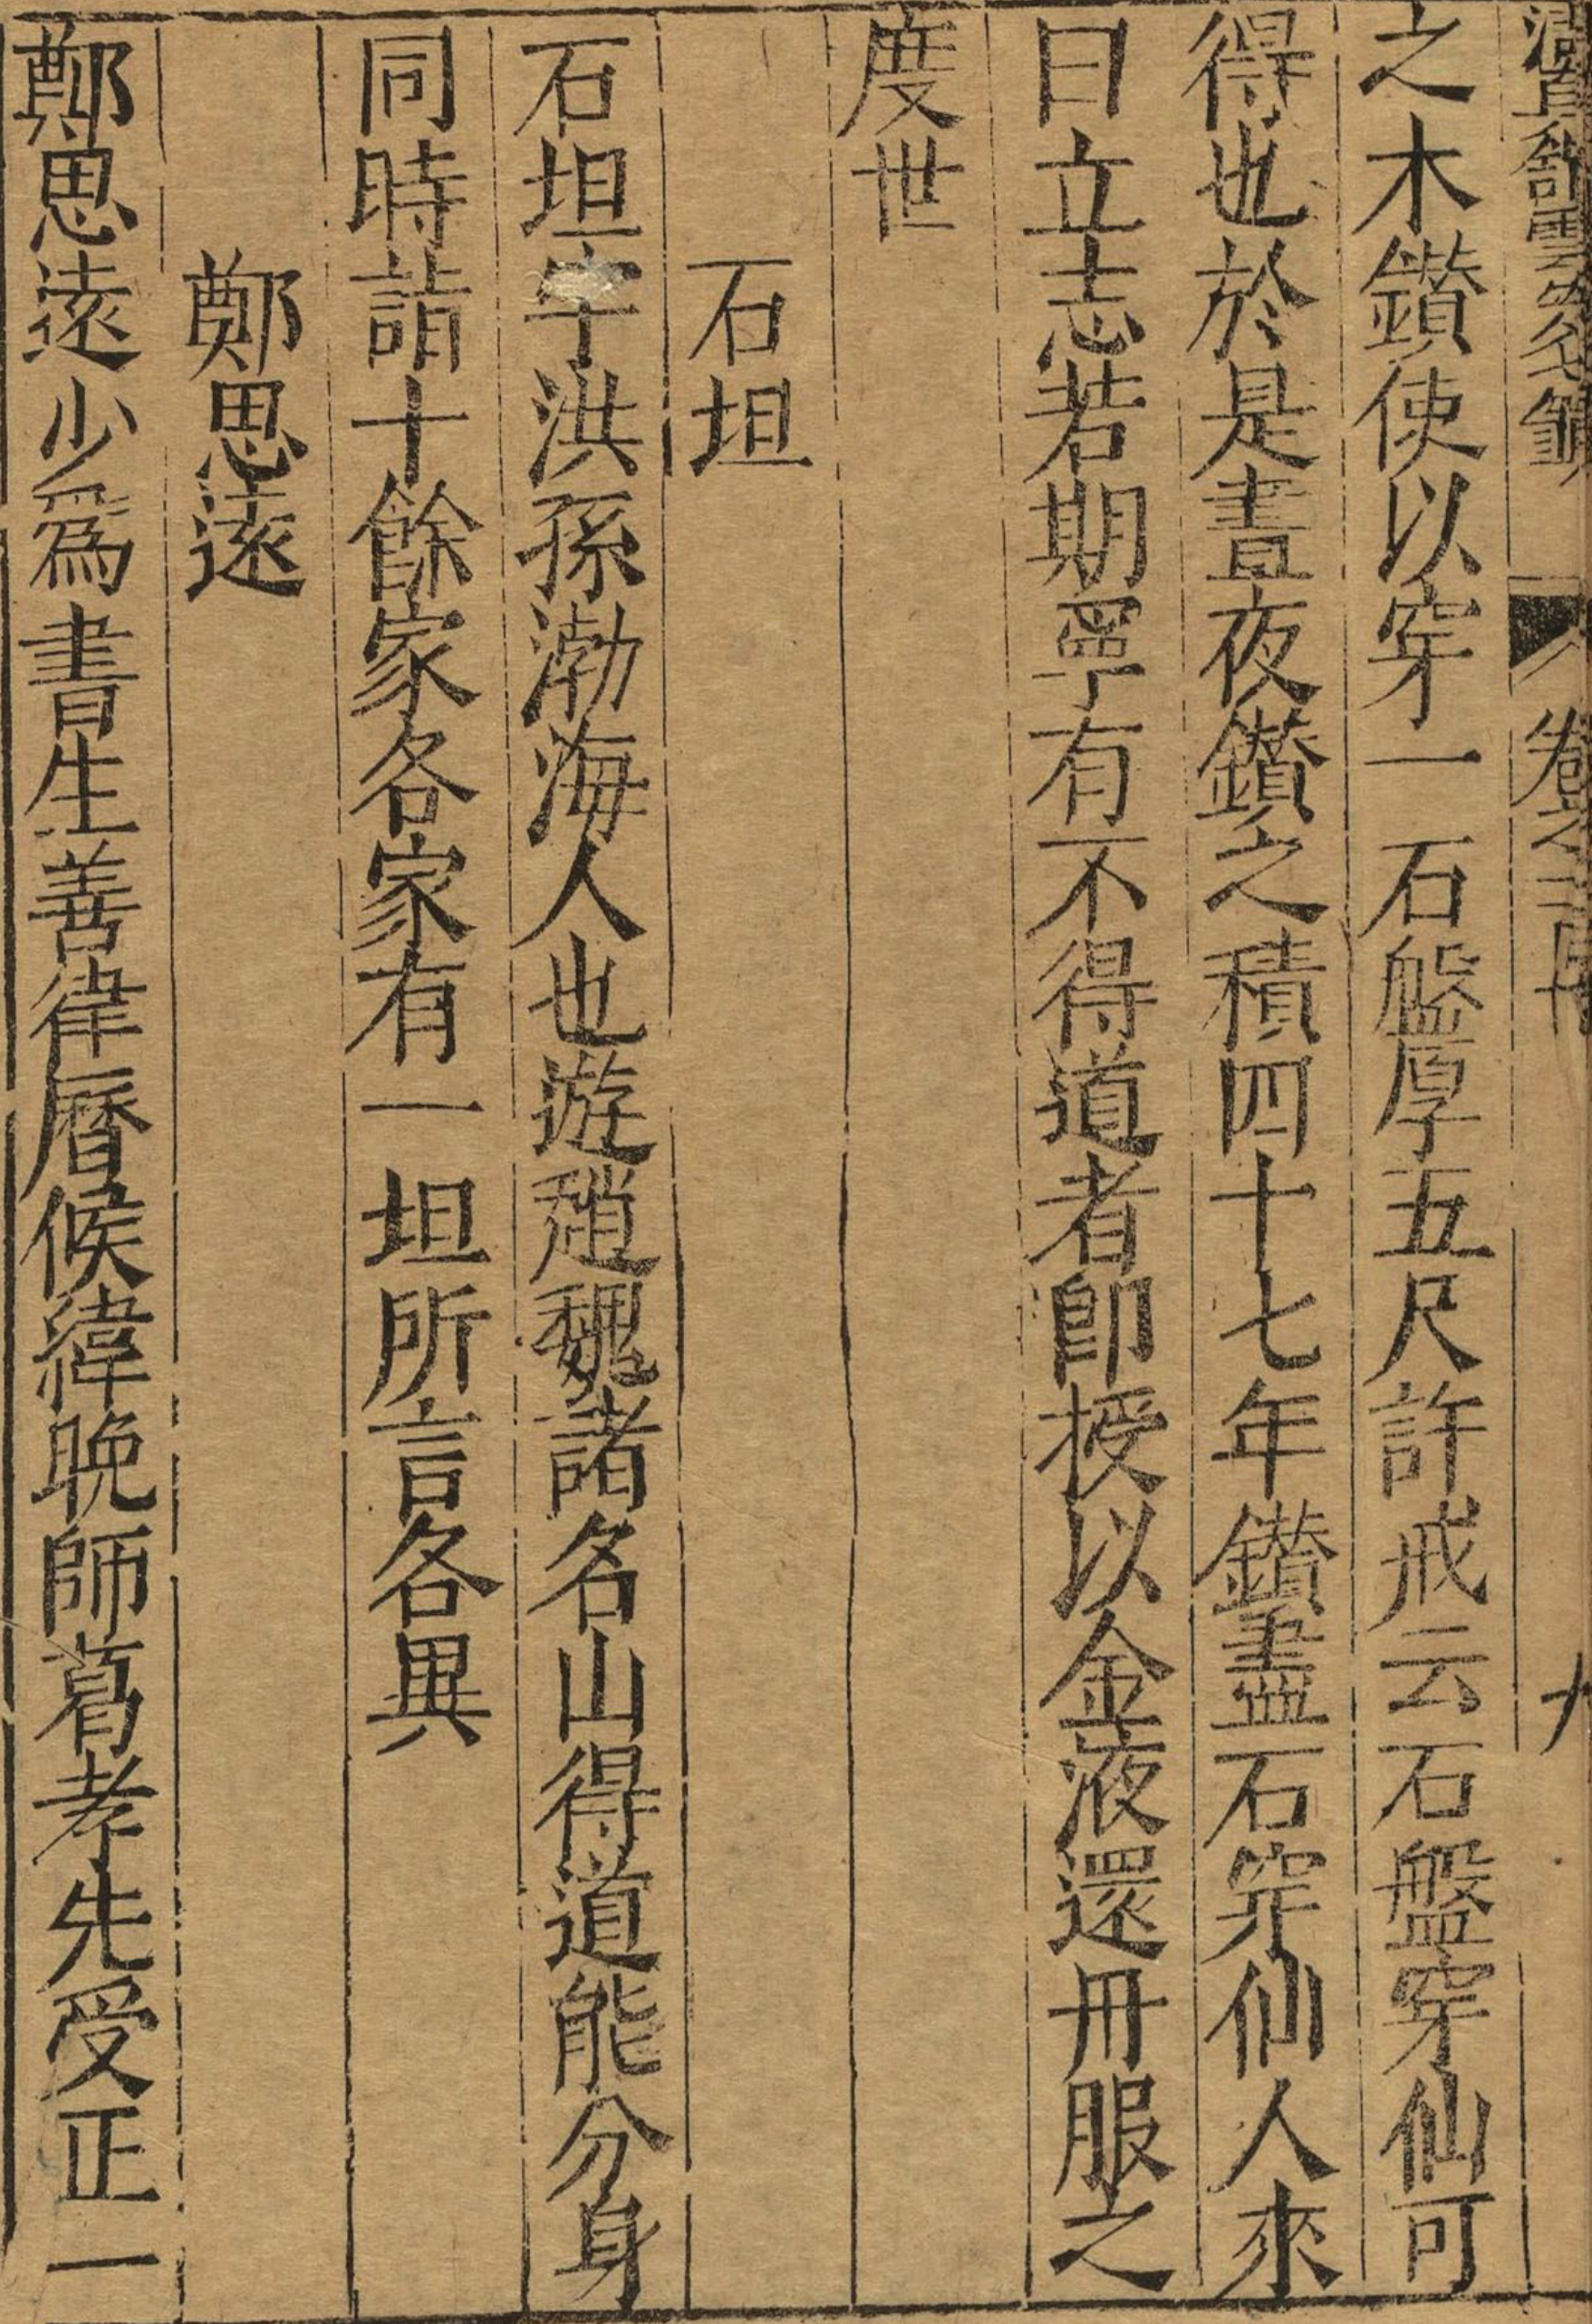 之木鑚使以穿一石盤厚五尺許戒云石盤穿仙可
得也於是晝夜鑚之積四十七年鑚盡石穿仙人來
曰立志若期寧有不得道者卽授以金液還丹服之
度世
石坦
石坦字洪孫渤海人也遊趙魏諸名山得道能分身
同時詣十餘家各家有一坦所言各異
鄭思遠
鄭思遠少爲書生善律曆候緯晚師葛孝先受正一